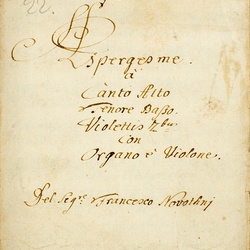 22.
Asperges me.
à
Canto Alto
Tenore Basso.
Violettis 2bus
Con
Organo è Violone.
Del Sigre Francesco Novothni